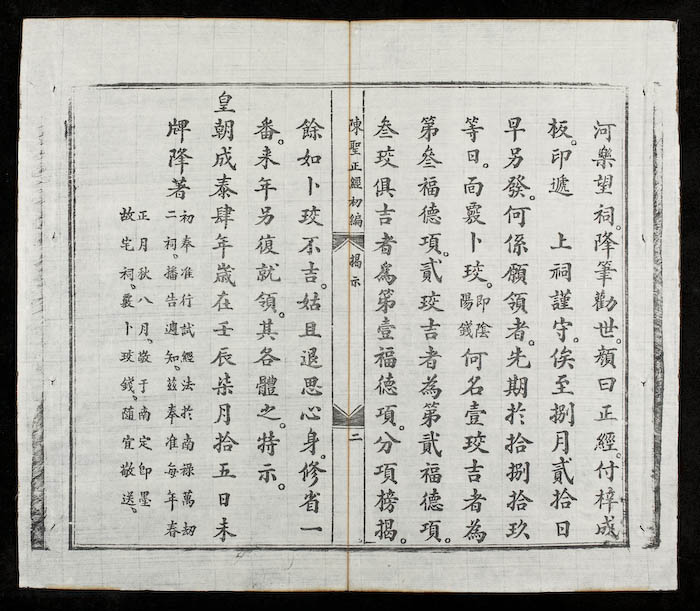 河樂望祠。降筆勸世。顏曰正經。付梓成
板。印遞　上祠謹守。俟至捌月貳拾日
早另發。何係願領者。先期於拾捌拾玖
等日。向裦卜珓。即陰陽錢何名壹珓吉者為
第叁福德項。貳珓吉者為第貳福德項。
叁珓俱吉者爲第壹福德項。分項榜揭。
陳聖正經初編　揭示　二
餘如卜珓不吉。姑且退思心身。修省一
番。来年另復就領。其各體之。特示。
皇朝成泰肆年歲在壬辰柒月拾五日未
牌降著
初奉准行試經法於南祿萬刧
二祠。播告週知。茲奉准每年春
正月秋八月。敬于南定印墨
故宅祠。裦卜珓錢。隨宜敬送。